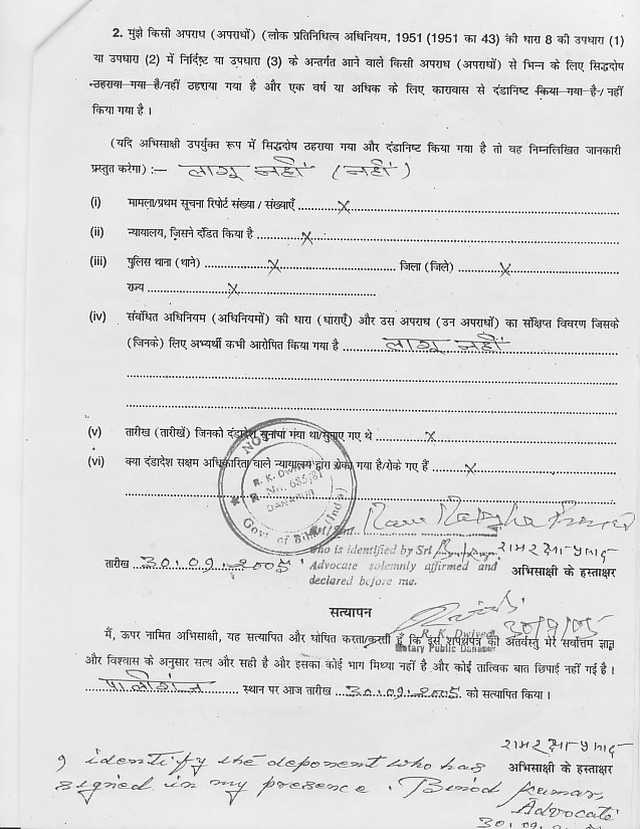 2. मुझे किसी अपराध (अपराधों) (लोक प्रतिनिधित्व अधिनियम, 1951 (1951 का 43) की धारा 8 की उपधारा (1)
या उपधारा (2) में निर्दिष्ट या उपधारा (3) के अन्तर्गत आने वाले किसी अपराध (अपराधों) से भिन्न के लिए सिद्धदोष
ठहराया गया है/नहीं ठहराया गया है और एक वर्ष या अधिक के लिए कारावास से दंडानिष्ट किया गया है / नहीं
किया गया है ।
(यदि अभिसाक्षी उपर्युक्त रूप में सिद्धदोष ठहराया गया और दंडानिष्ट किया गया है तो वह निम्नलिखित जानकारी
प्रस्तुत करेगा) :— लागू नहीं (नहीं)
(i) मामला/प्रथम सूचना रिपोर्ट संख्या / संख्याएँ ........ X ........
(ii) न्यायालय, जिसने दंडित किया है ........ X ........
(iii) पुलिस थाना (थाने) ........ X ........ जिला (जिले) ........ X ........
राज्य ........ X ........
(iv) संबंधित अधिनियम (अधिनियमों) की धारा (धाराएँ) और उस अपराध (उन अपराधों) का संक्षिप्त विवरण जिसके
(जिनके) लिए अभ्यर्थी कभी आरोपित किया गया है ........ लागू नहीं
(v) तारीख (तारीखें) जिनको दंडादेश सुनाया गया था/सुनाए गए थे ........ X ........
(vi) क्या दंडादेश सक्षम अधिकारिता वाले न्यायालय द्वारा रोका गया है/रोके गए हैं ........ X ........
R. K. Dwivedi
DANAPUR
Govt of Bihar (India)
who is identified by Sri
Advocate solemnly affirmed and
declared before me.
तारीख 30.09.2005
अभिसाक्षी के हस्ताक्षर
सत्यापन
30/9/05
R. K. Dwivedi
Notary Public Danapur
मैं, ऊपर नामित अभिसाक्षी, यह सत्यापित और घोषित करता/करती हूँ कि इस शपथपत्र की अंतर्वस्तु मेरे सर्वोत्तम ज्ञान
और विश्वास के अनुसार सत्य और सही है और इसका कोई भाग मिथ्या नहीं है और कोई तात्विक बात छिपाई नहीं गई है ।
स्थान पर आज तारीख 30.09.2005 को सत्यापित किया ।
अभिसाक्षी के हस्ताक्षर
I identify the deponent who has
signed in my presence. Binod Kumar,
Advocate
30.09.